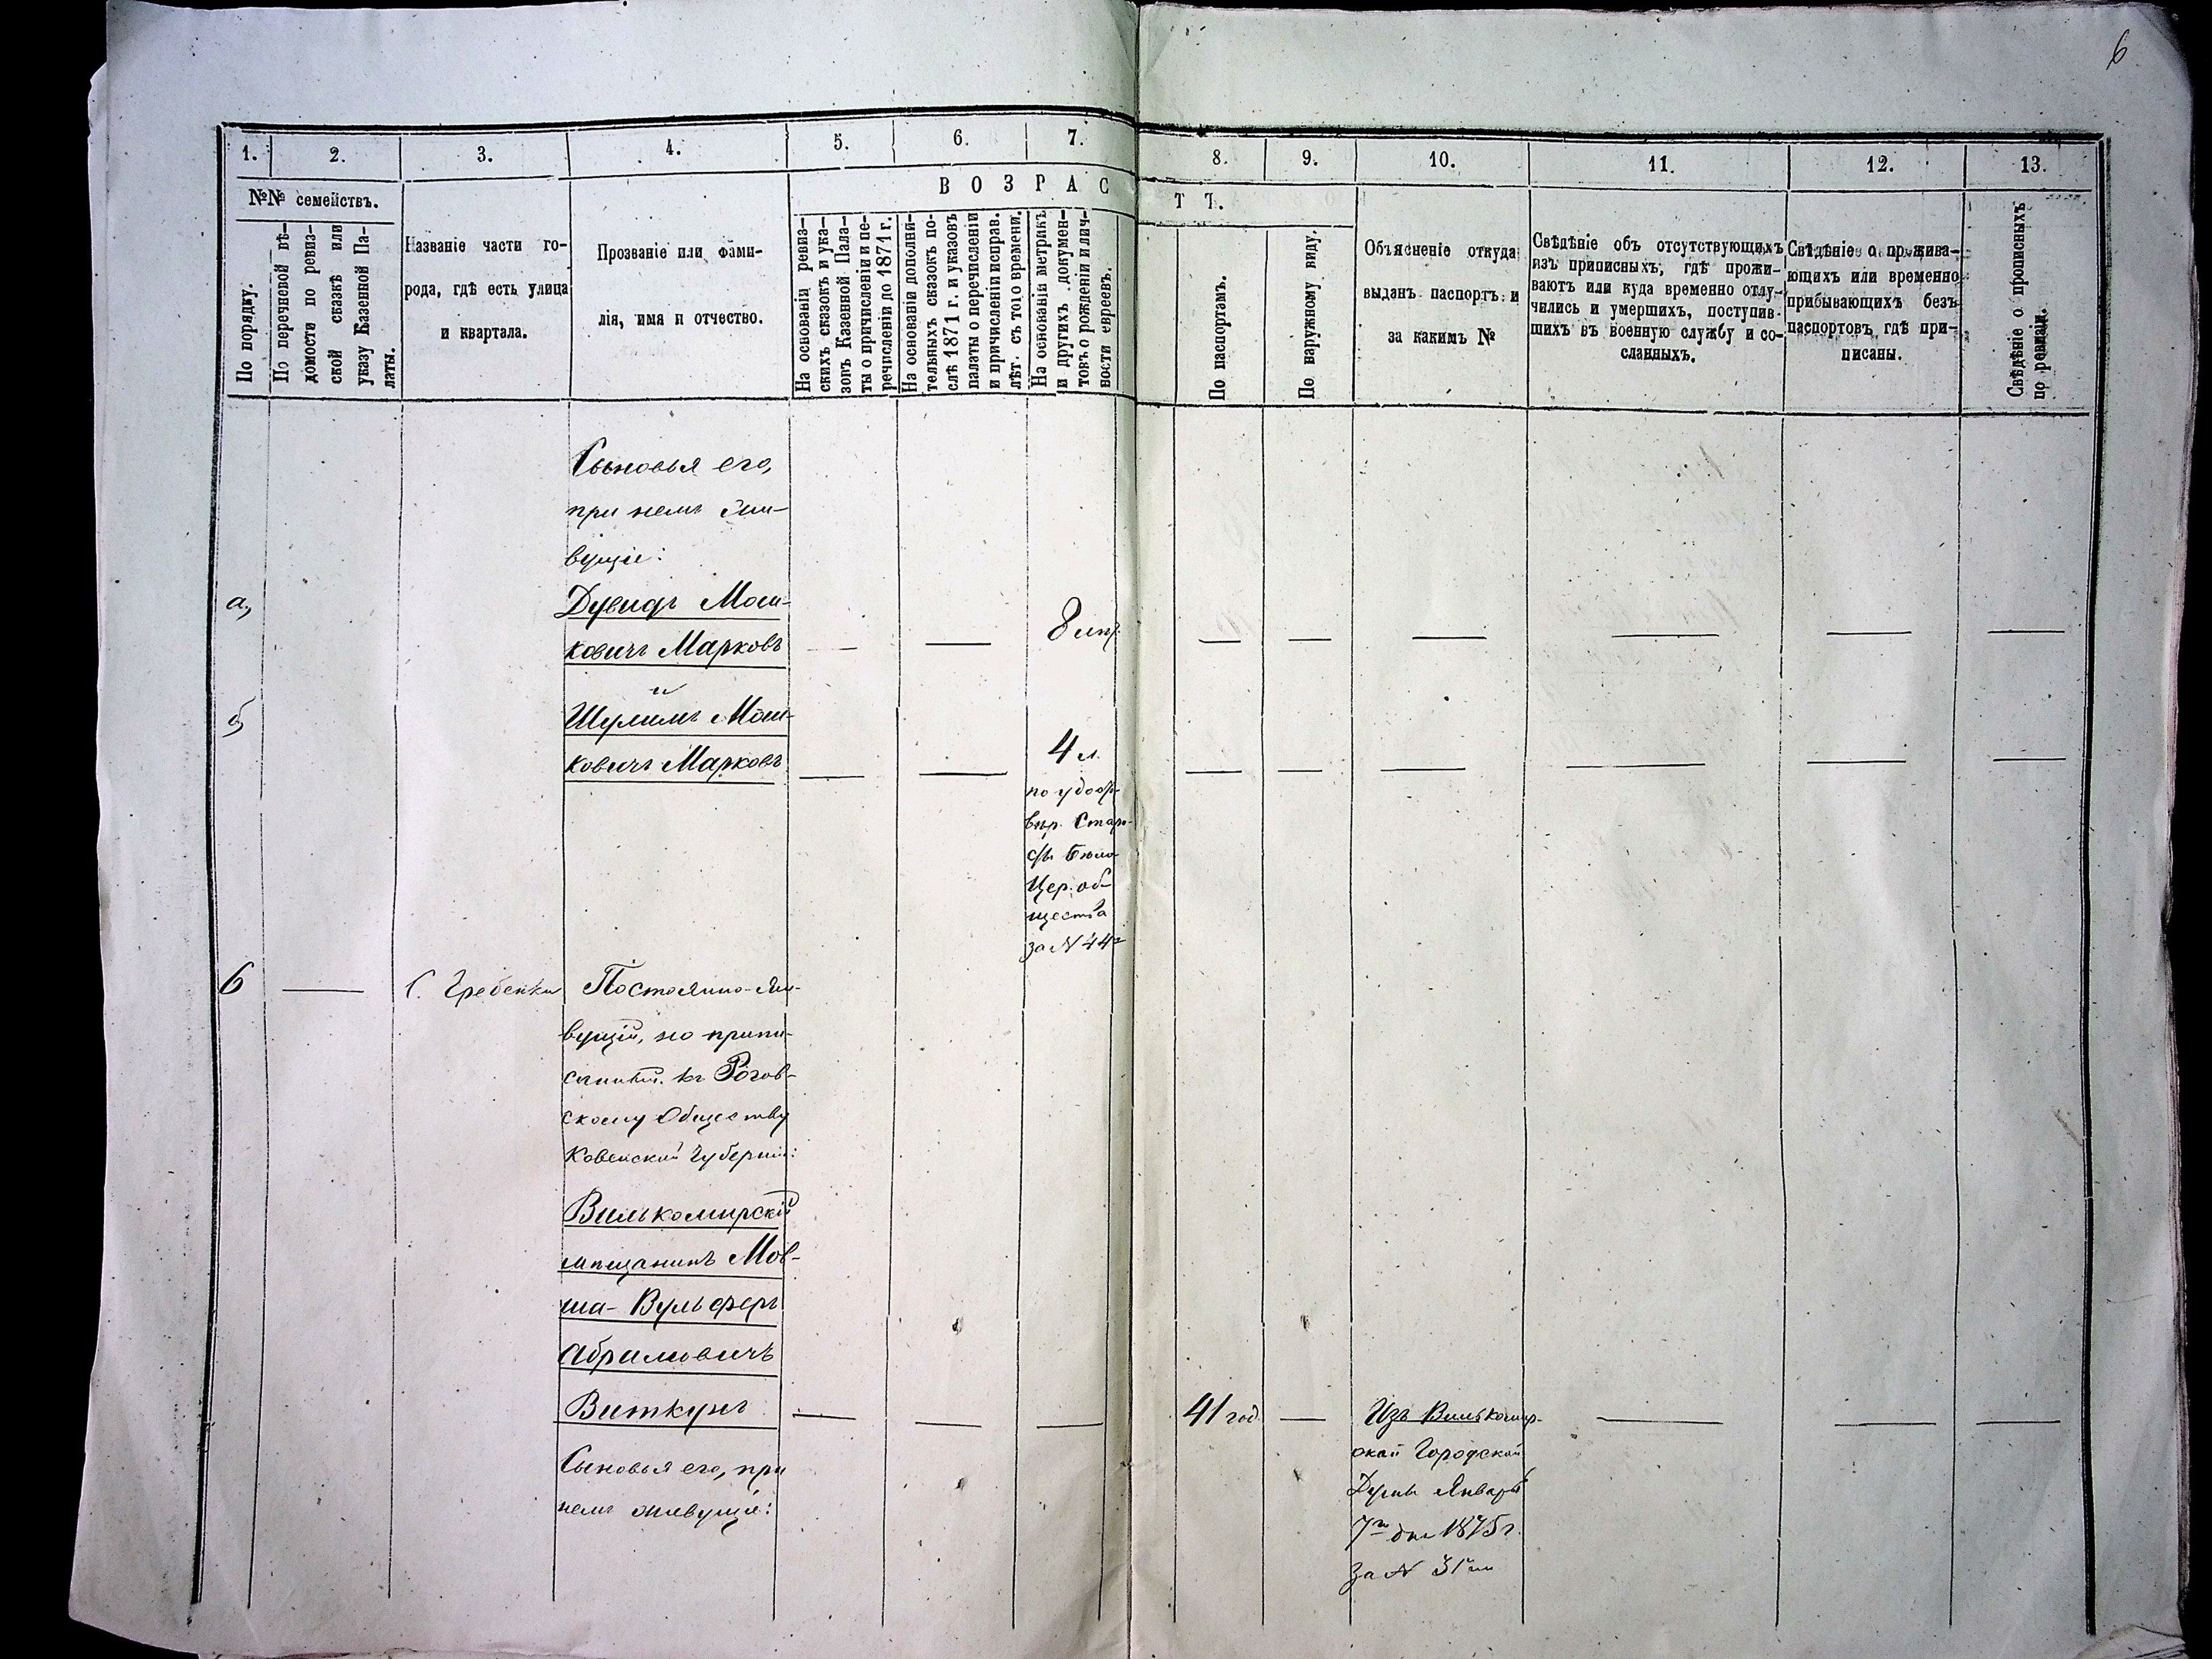 6
1.
2.
3.
4.
5.
6.
7.
8.
9.
10.
11.
12.
13.
№№ семействъ.
ВОЗРАС
ТЪ.
По порядку.
По перечневой вѣ-
домости по ревиз-
ской сказкѣ или
указу Казенной Па-
латы.
Названіе части го-
рода, гдѣ есть улица
и квартала.
Прозваніе или фами-
лія, имя и отчество.
На основаніи ревиз-
скихъ сказокъ и ука-
зовъ Казенной Пала-
ты о причисленіи и пе-
речисленіи до 1871 г.
На основаніи дополни-
тельныхъ сказокъ по-
слѣ 1871 г. и указовъ
палаты о перечисленіи
и причисленіи исправ.
лѣт. съ того времени.
На основаніи метрикъ
и другихъ докумен-
товъ о рожденіи и лич-
ности евреевъ.
По паспортамъ.
По наружному виду.
Объясненіе откуда
выданъ паспортъ и
за какимъ №
Свѣдѣніе объ отсутствующихъ
изъ приписныхъ, гдѣ прожи-
ваютъ или куда временно отлу-
чились и умершихъ, поступив-
шихъ въ военную службу и со-
сланныхъ.
Свѣдѣніе о прожива-
ющихъ или временно
прибывающихъ безъ
паспортовъ, гдѣ при-
писаны.
Свѣдѣніе о прописныхъ
по ревизіи.
Сыновья его,
при немъ жи-
вущіе:
а,
Дувидъ Мош-
ковичъ Марковъ
8 лѣт.
и
б,
Шулимъ Мош-
ковичъ Марковъ
4 л.
по удост.
Бѣло
Цер. об-
щества
за № 44
6
С. Гребенки
Постоянно-жи-
вущій, но припи-
санный. къ Рогов-
скому Обществу
Ковенской Губерніи:
Вилькомирскій
мѣщанинъ Мов-
ша-Вульферъ
Абрамовичъ
Виткунъ
41 год.
Изъ Вилькомир-
ской Городской
Думы Января
7го дня 1875 г.
за № 31
Сыновья его, при
немъ живущіе: